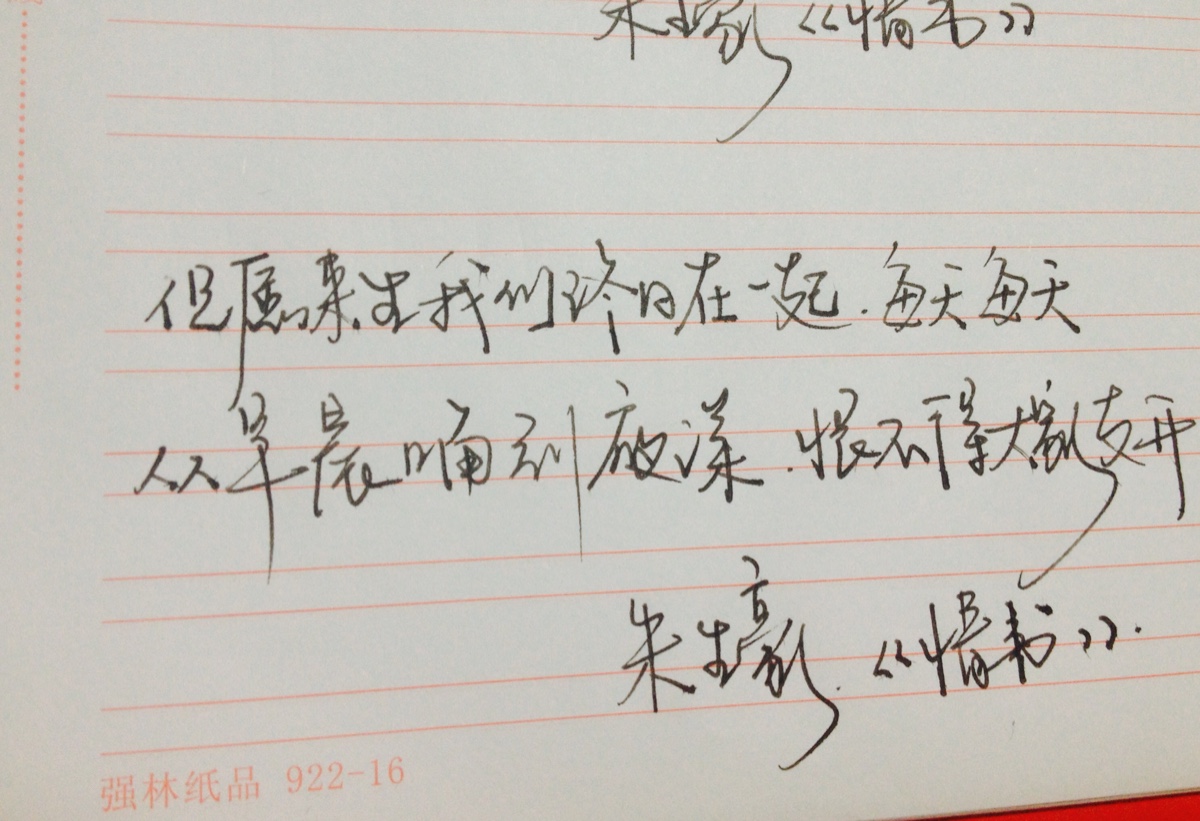 朱生豪《情书》
但愿来生我们终日在一起.每天每天
从早晨口角到夜深.恨不得大家走开
朱生豪.《情书》.
强林纸品 922-16